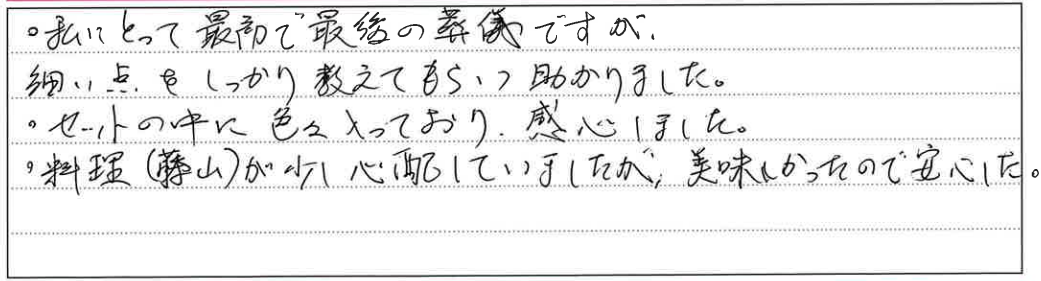 。私にとって最初で最後の葬儀ですが、
細い点をしっかり教えてもらいつ助かりました。
。セットの中に色々入っており、感心しました。
。料理(藤山)が少し心配していましたが、美味しかったので安心した。